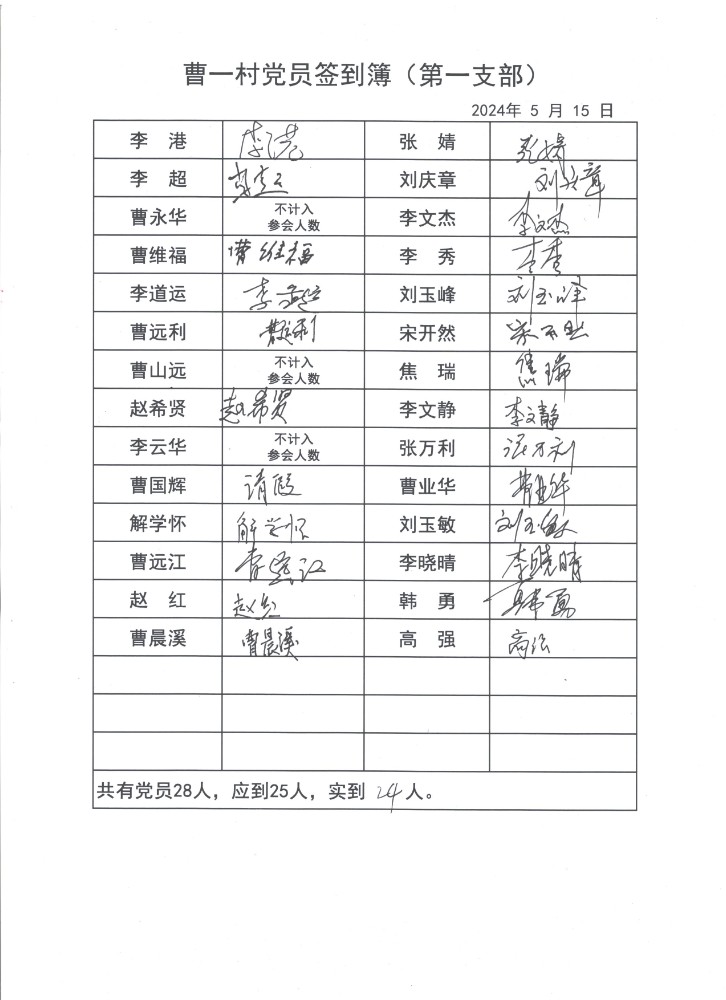 曹一村党员签到簿（第一支部）
2024年 5 月 15 日
李 港 李港 张 婧 张婧
李 超 李超 刘庆章 刘庆章
曹永华 不计入 李文杰 李文杰
参会人数
曹维福 曹维福 李 秀 李秀
李道运 李道运 刘玉峰 刘玉峰
曹远利 曹远利 宋开然 宋开然
曹山远 不计入 焦 瑞 焦瑞
参会人数
赵希贤 赵希贤 李文静 李文静
李云华 不计入 张万利 张万利
参会人数
曹国辉 请假 曹业华 曹业华
解学怀 解学怀 刘玉敏 刘玉敏
曹远江 曹远江 李晓晴 李晓晴
赵 红 赵红 韩 勇 韩勇
曹晨溪 曹晨溪 高 强 高强
共有党员28人，应到25人，实到 24 人。